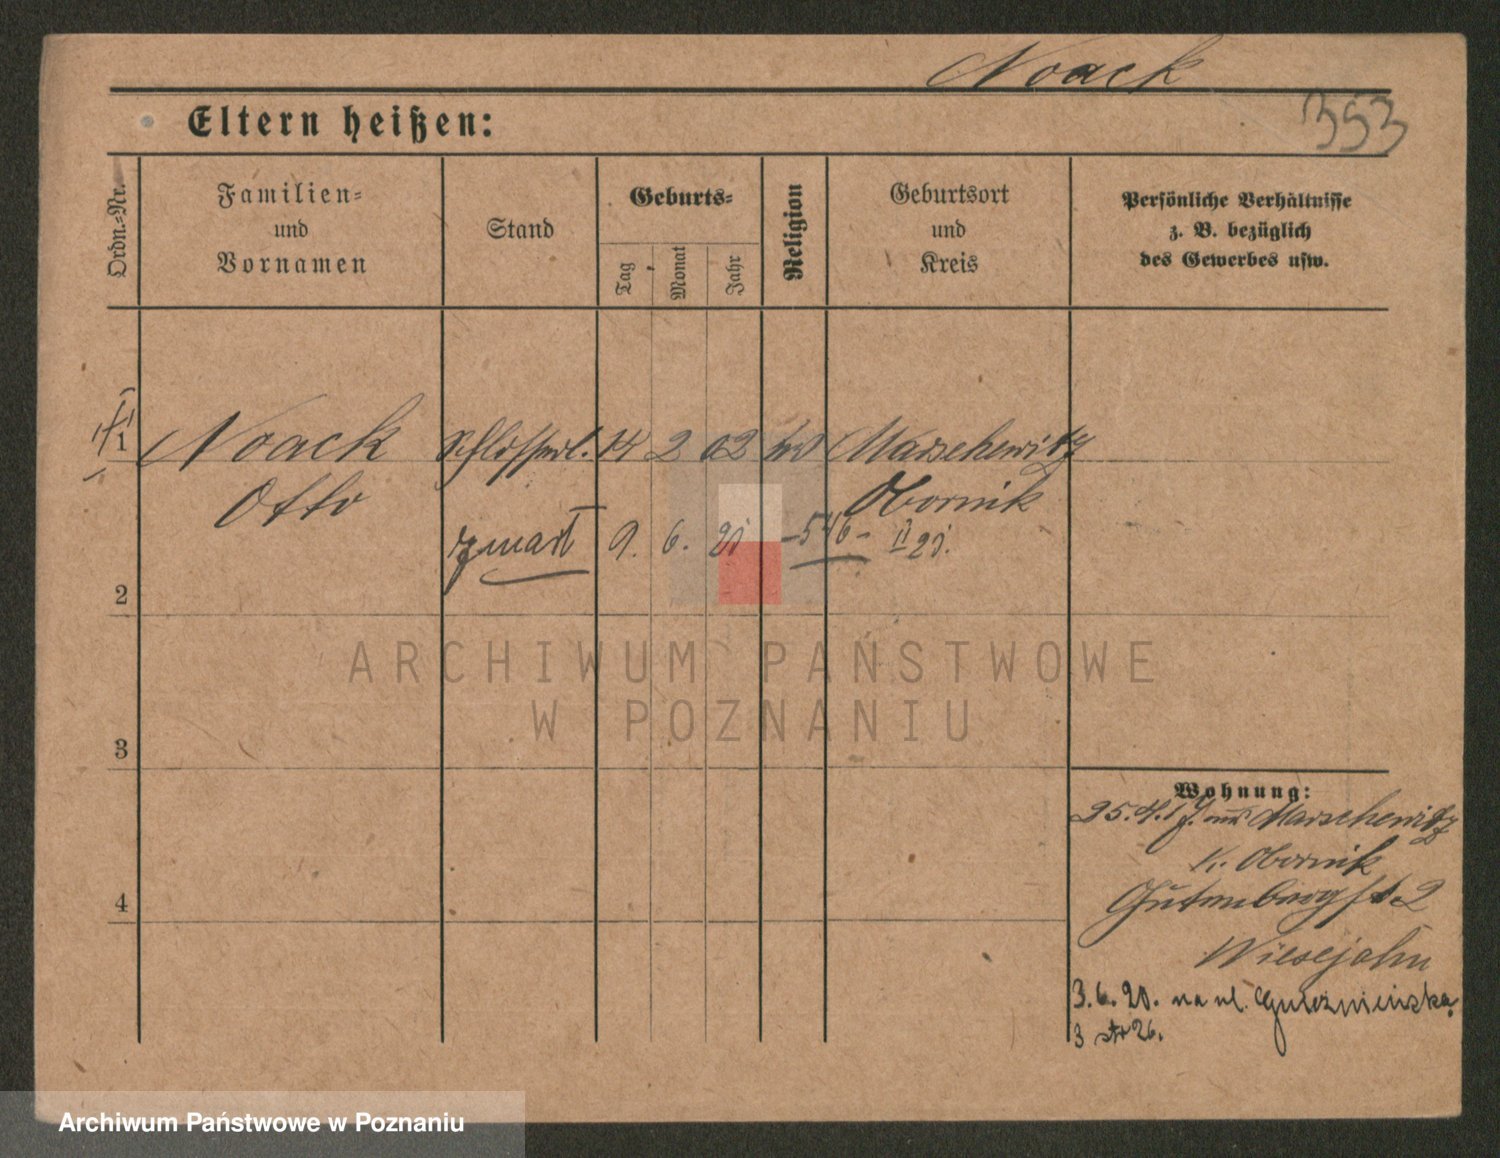 Noack
353
Eltern heißen:
Ordn.-Nr.
Familien-
und
Vornamen
Stand
Geburts-
Tag
Monat
Jahr
Religion
Geburtsort
und
Kreis
Persönliche Verhältnisse
z. B. bezüglich
des Gewerbes usw.
1 Noack Schlosserl. 14 2 02 Marschewitz
Otto Obornik
zmarł 9. 6. 20 -546- II 20.
2
3
4
Wohnung:
25.4.17. aus Marschewitz
K. Obornik
Gutenbergst 2
Wiesejahn
3.6.20. na ul. Gnieźnieńską
3 str 26.
ARCHIWUM PAŃSTWOWE
W POZNANIU
Archiwum Państwowe w Poznaniu